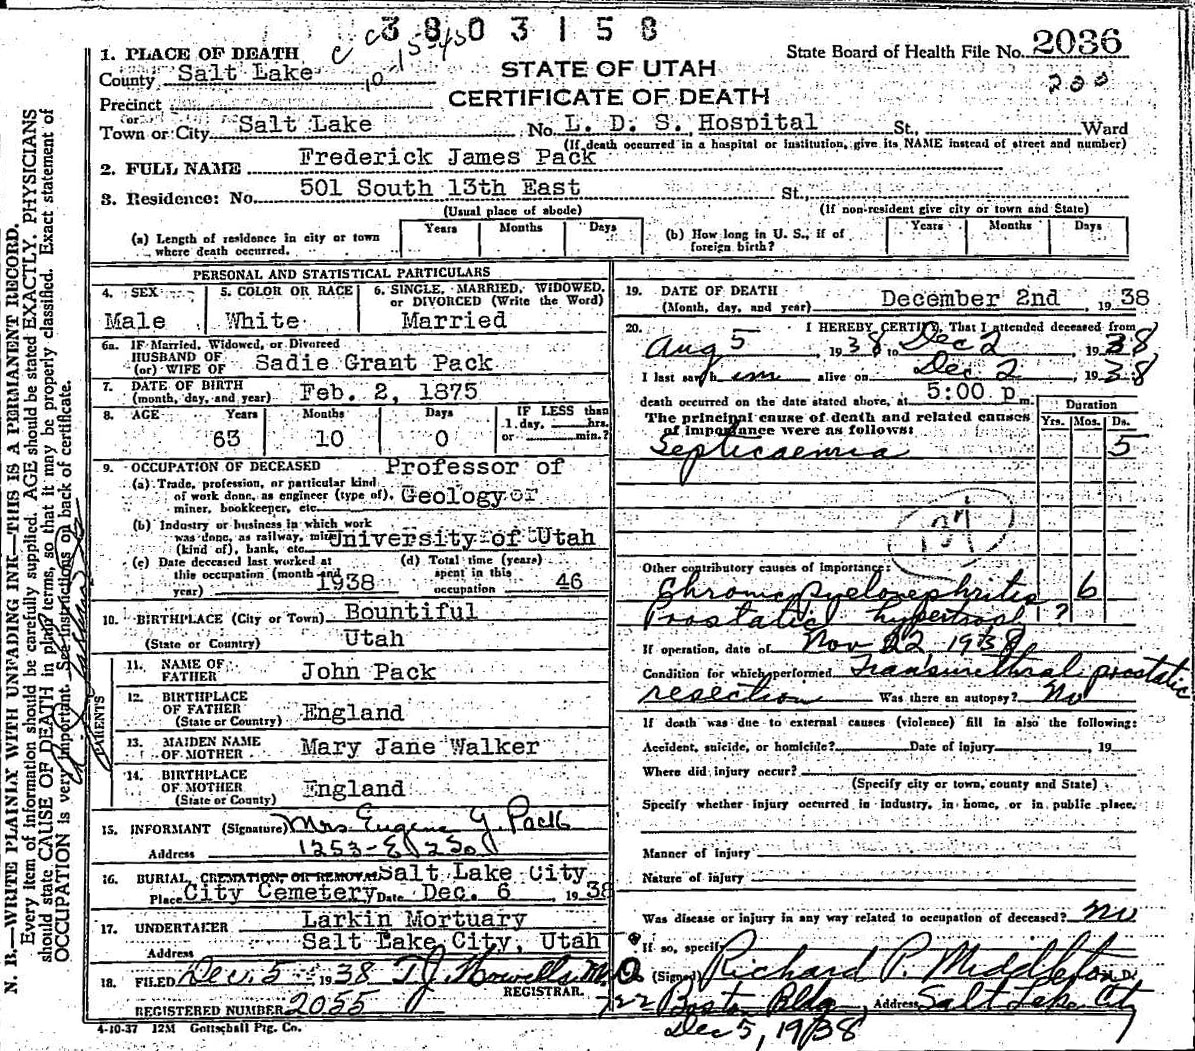 3803158
1. PLACE OF DEATH
State Board of Health File No. 2036
County Salt Lake
STATE OF UTAH
200
Precinct
CERTIFICATE OF DEATH
or
Town or City Salt Lake No. L. D. S. Hospital St., Ward
(If death occurred in a hospital or institution, give its NAME instead of street and number)
2. FULL NAME Frederick James Pack
3. Residence: No. 501 South 13th East St.
(Usual place of abode) (If non-resident give city or town and State)
(a) Length of residence in city or town where death occurred. Years Months Days
(b) How long in U. S., if of foreign birth? Years Months Days
PERSONAL AND STATISTICAL PARTICULARS
4. SEX Male
5. COLOR OR RACE White
6. SINGLE, MARRIED, WIDOWED, or DIVORCED (Write the Word) Married
6a. IF Married, Widowed, or Divorced
HUSBAND OF
(or) WIFE OF Sadie Grant Pack
7. DATE OF BIRTH
(month, day, and year) Feb. 2, 1875
8. AGE Years Months Days IF LESS than
1 day, hrs.
or min.?
63 10 0
9. OCCUPATION OF DECEASED Professor of
(a) Trade, profession, or particular kind
of work done, as engineer (type of), Geology or
miner, bookkeeper, etc.
(b) Industry or business in which work
was done, as railway, mine University of Utah
(kind of), bank, etc.
(c) Date deceased last worked at
this occupation (month and
year) 1938
(d) Total time (years)
spent in this
occupation 46
10. BIRTHPLACE (City or Town) Bountiful
(State or Country) Utah
PARENTS
11. NAME OF
FATHER John Pack
12. BIRTHPLACE
OF FATHER England
(State or Country)
13. MAIDEN NAME
OF MOTHER Mary Jane Walker
14. BIRTHPLACE
OF MOTHER England
(State or Country)
15. INFORMANT (Signature) Mrs Eugene G. Pack
Address 1253-E 2 So
16. BURIAL, CREMATION, OR REMOVAL Salt Lake City
Place City Cemetery Date Dec. 6, 1938
17. UNDERTAKER Larkin Mortuary
Address Salt Lake City, Utah
18. FILED Dec. 5 1938 T.J. Howells M.D.
REGISTRAR.
REGISTERED NUMBER 2055
4-10-37 12M Gottschall Ptg. Co.
19. DATE OF DEATH
(Month, day, and year) December 2nd, 1938
20. I HEREBY CERTIFY, That I attended deceased from
Aug 5 1938 to Dec 2, 1938
I last saw him alive on Dec 2, 1938
death occurred on the date stated above, at 5:00 p m.
The principal cause of death and related causes
of importance were as follows:
Duration
Yrs. Mos. Ds.
Septicaemia 5
Other contributory causes of importance:
Chronic pyelonephritis 6
Prostatic hypertroph ?
If operation, date of Nov 22, 1938
Condition for which performed Transurethral prostatic
resection Was there an autopsy? No
If death was due to external causes (violence) fill in also the following:
Accident, suicide, or homicide? Date of injury, 19
Where did injury occur?
(Specify city or town, county and State)
Specify whether injury occurred in industry, in home, or in public place.
Manner of injury
Nature of injury
Was disease or injury in any way related to occupation of deceased? no
If so, specify
(Signed) Richard P. Middleton M. D.
722 Boston Bldg Address Salt Lake City
Dec 5, 1938
N. B.—WRITE PLAINLY WITH UNFADING INK—THIS IS A PERMANENT RECORD.
Every item of information should be carefully supplied. AGE should be stated EXACTLY. PHYSICIANS
should state CAUSE OF DEATH in plain terms, so that it may be properly classified. Exact statement of
OCCUPATION is very important. See instructions on back of certificate.